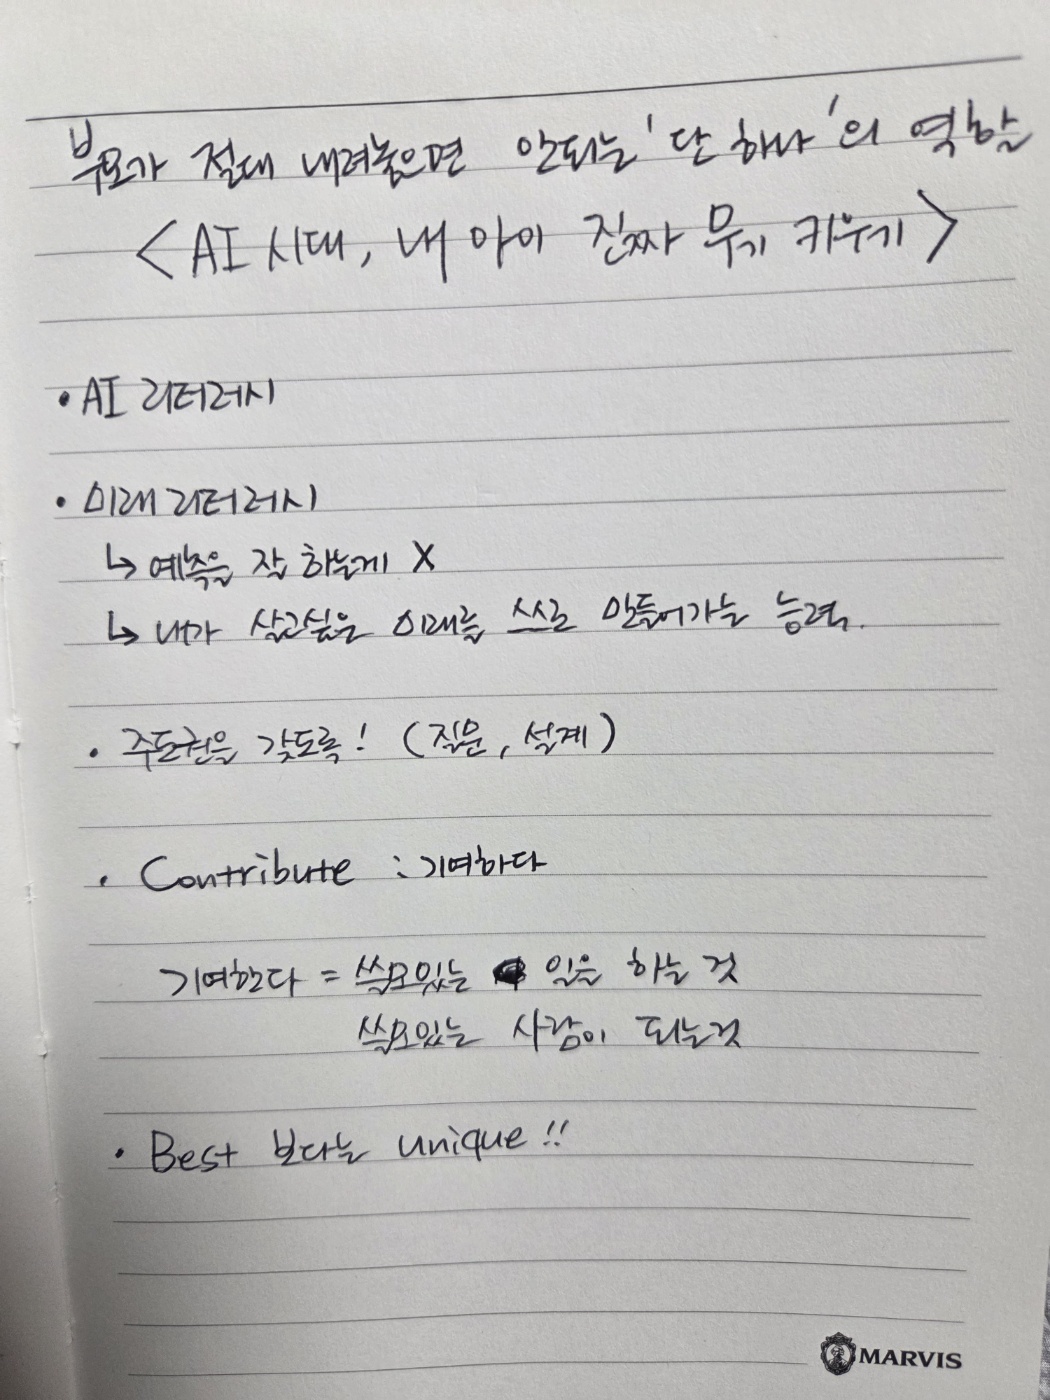 부모가 절대 내려놓으면 안되는 '단 하나'의 역할
<AI 시대, 내 아이 진짜 무기 키우기>
• AI 리터러시
• 미래 리터러시
↳ 예측을 잘 하는게 X
↳ 내가 살고싶은 미래를 스스로 만들어가는 능력.
• 주도권을 갖도록! (질문, 설계)
• Contribute : 기여하다
기여한다 = 쓸모있는 일을 하는 것
쓸모있는 사람이 되는것
• Best 보다는 unique!!
MARVIS